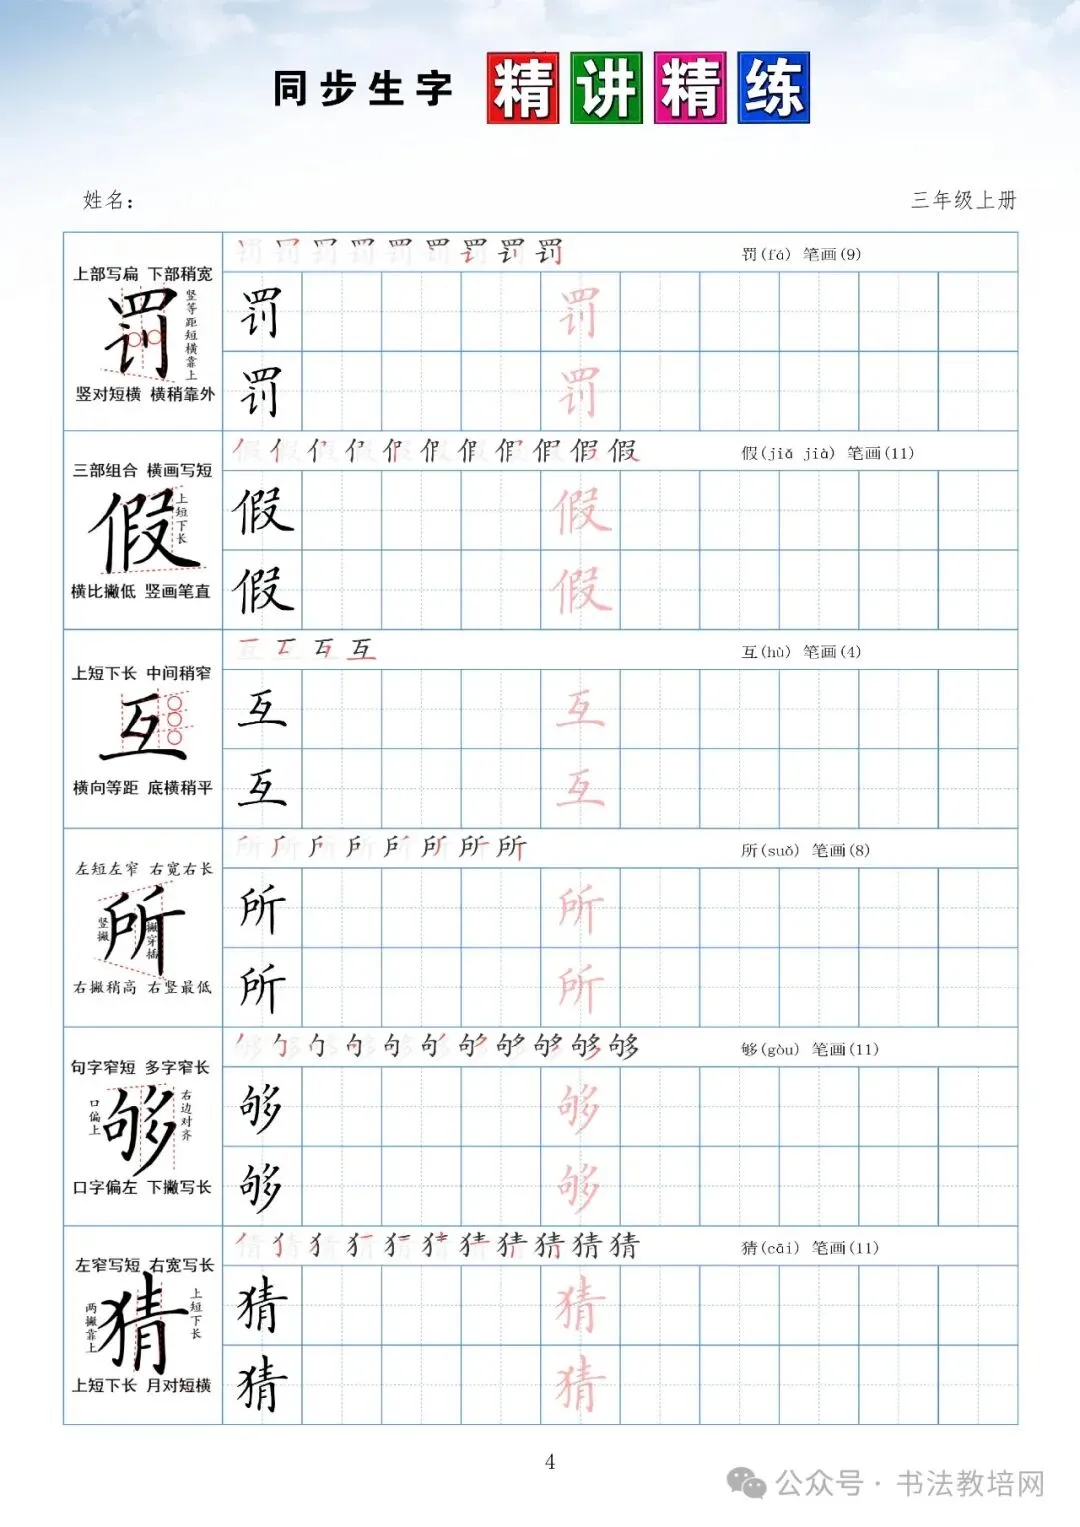 同步生字 精讲精练
姓名：
三年级上册
罚 罚(fá) 笔画(9)
上部写扁 下部稍宽
罚
竖等距短横靠上
竖对短横 横稍靠外
罚 罚
罚 罚
假 假(jiǎ jià) 笔画(11)
三部组合 横画写短
假
上短下长
横比撇低 竖画笔直
假 假
假 假
互 互(hù) 笔画(4)
上短下长 中间稍窄
互
横向等距 底横稍平
互 互
互 互
所 所(suǒ) 笔画(8)
左短左窄 右宽右长
所
竖撇
撇穿插
右撇稍高 右竖最低
所 所
所 所
够 够(gòu) 笔画(11)
句字窄短 多字窄长
够
口偏上
右边对齐
口字偏左 下撇写长
够 够
够 够
猜 猜(cāi) 笔画(11)
左窄写短 右宽写长
猜
两撇靠上
上短下长
上短下长 月对短横
猜 猜
猜 猜
4
公众号 · 书法教培网